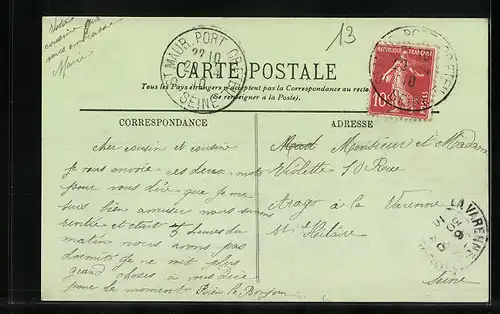 Votre
cousine qui
vous embrasse
Marie
13
ST MAUR PORT CRETEIL
22 10
SEINE
CARTE POSTALE
Tous les Pays étrangers n'acceptent pas la Correspondance au recto
(Se renseigner à la Poste).
10
CORRESPONDANCE
ADRESSE
cher cousin et cousine
je vous envoie ses deux mots
pour vous dire que je me
suis bien amuser nous sommes
rentré et était 5 heures du
matin nous avons pas
dormit je ne voit plus
grand choses à vous dire
pour le moment Bien le Bonjour
Monsieur et Madam
Violette 10 Rue
Arago à la Varenne
St Hilaire
Seine
LA VARENNE